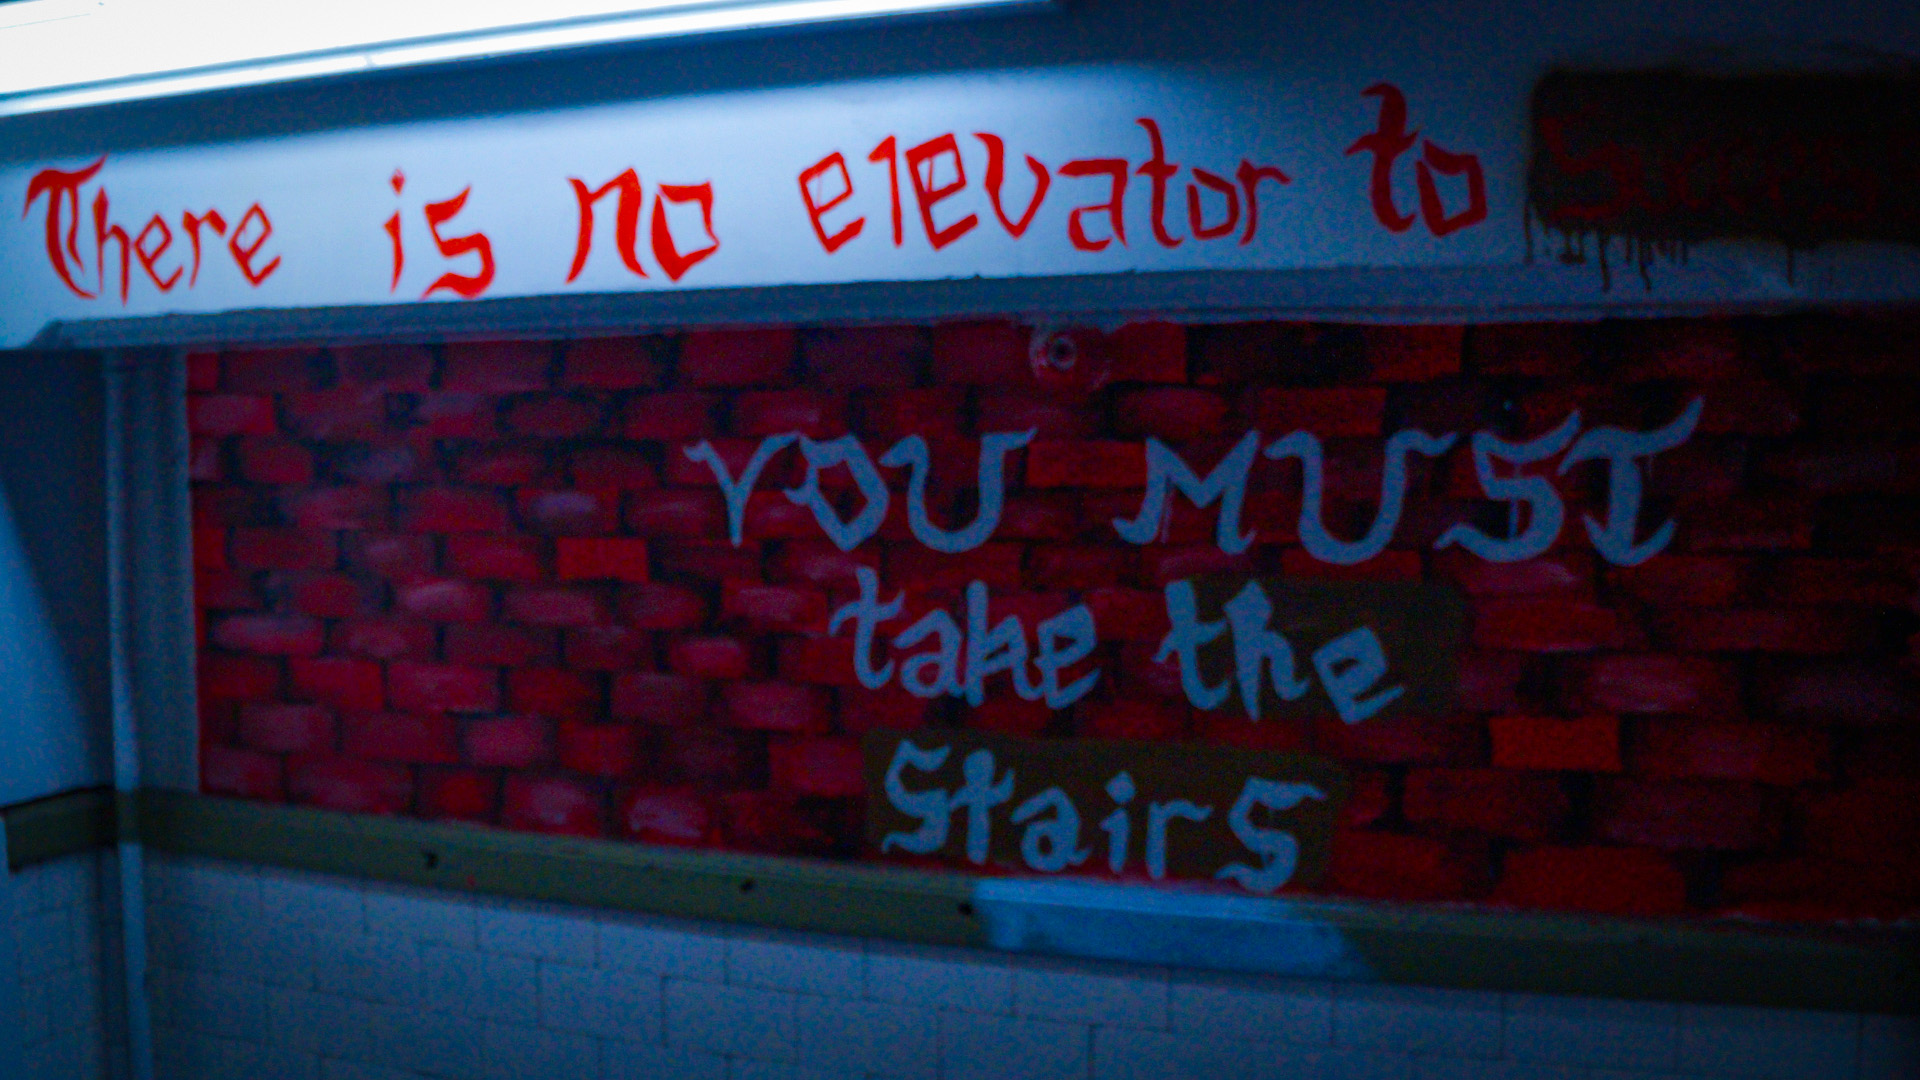 There is no elevator to Success
YOU MUST
take the
StairS